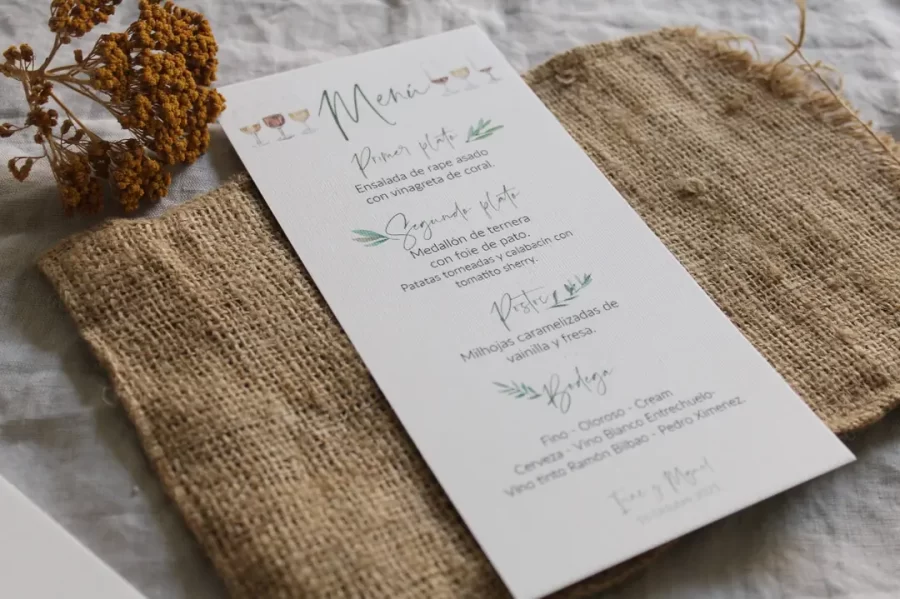 Menú
Primer plato
Ensalada de rape asado
con vinagreta de coral.
Segundo plato
Medallón de ternera
con foie de pato.
Patatas torneadas y calabacín con
tomatito sherry.
Postre
Milhojas caramelizadas de
vainilla y fresa.
Bodega
Fino - Oloroso - Cream
Cerveza - Vino Blanco Entrechuelo-
Vino tinto Ramón Bilbao - Pedro Ximenez.
y Miguel